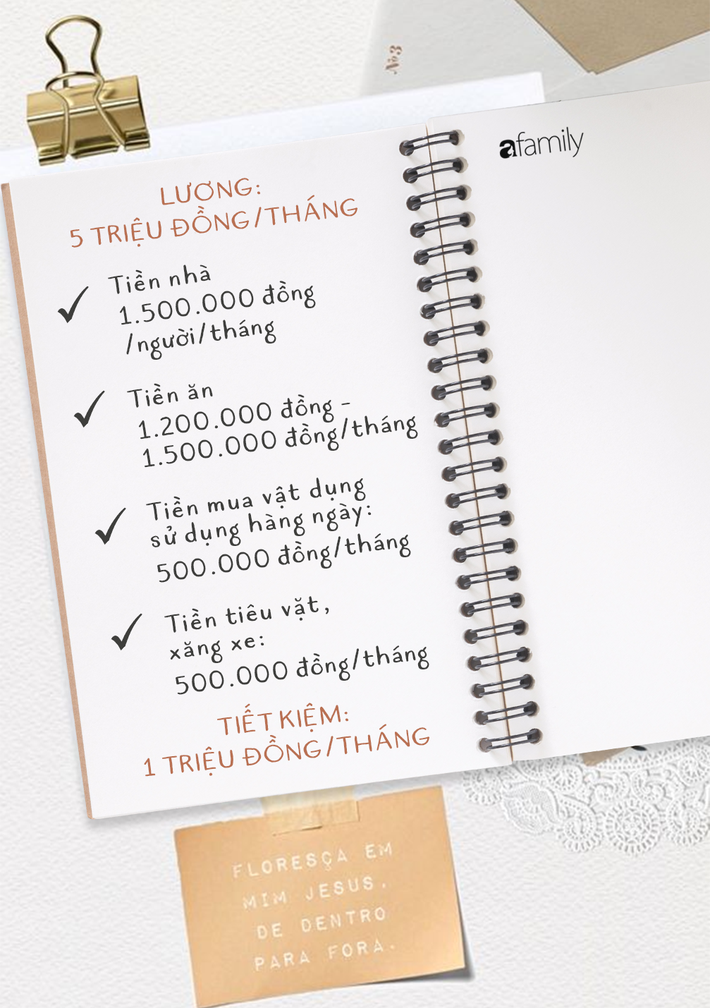 №3
afamily
LƯƠNG:
5 TRIỆU ĐỒNG/THÁNG
Tiền nhà
1.500.000 đồng
/người/tháng
Tiền ăn
1.200.000 đồng -
1.500.000 đồng/tháng
Tiền mua vật dụng
sử dụng hàng ngày:
500.000 đồng/tháng
Tiền tiêu vặt,
xăng xe:
500.000 đồng/tháng
TIẾT KIỆM:
1 TRIỆU ĐỒNG/THÁNG
FLORESÇA EM
MIM JESUS,
DE DENTRO
PARA FORA.